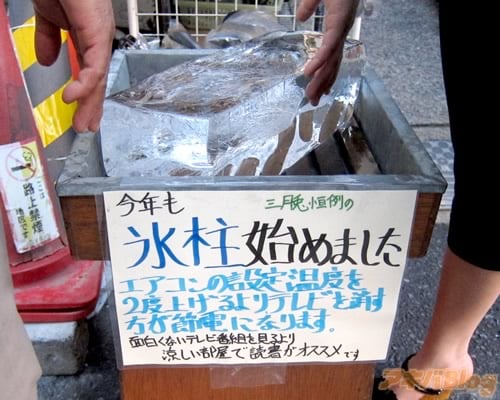 今年も
三月兎恒例の
氷柱始めました
エアコンの設定温度を
2度上げるよりテレビを消す
方が節電になります。
面白くないテレビ番組を見るより
涼しい部屋で読書がオススメです
ここは
路上禁煙
地区です
アキバBlog